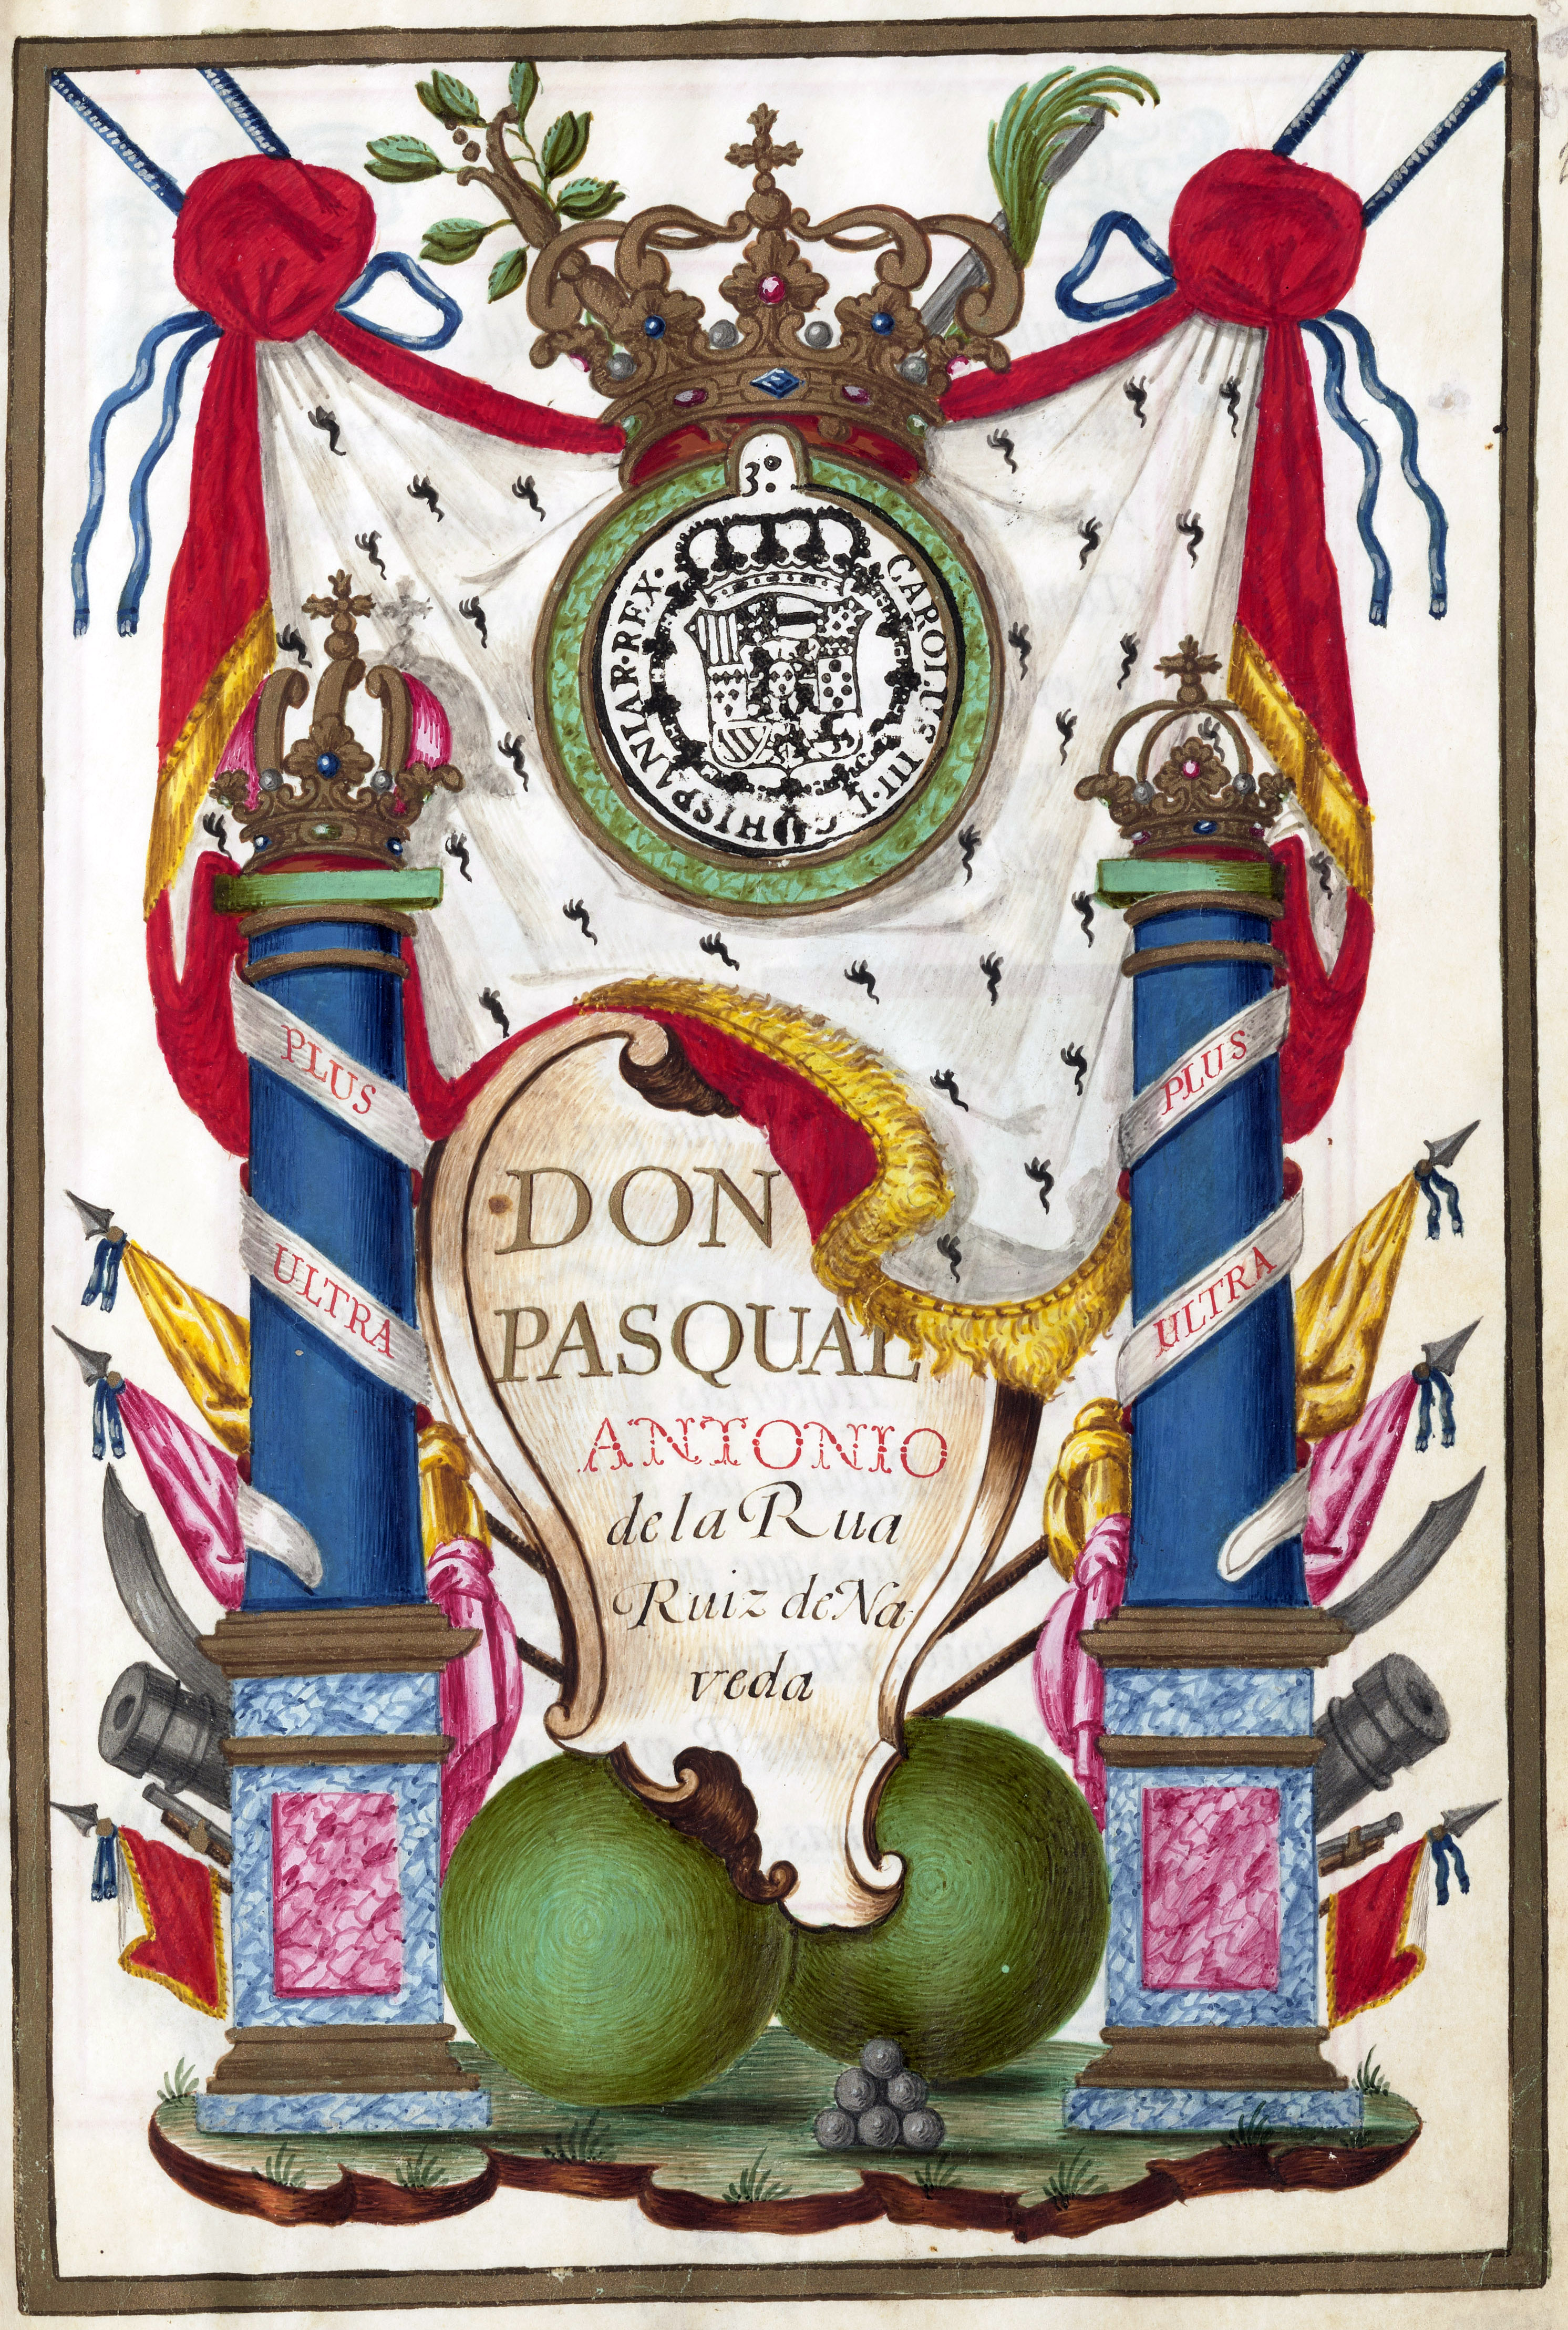 3:
CAROLUS·III·D·G·HISPANIAR·REX·
PLUS
ULTRA
PLUS
ULTRA
DON
PASQUAL
ANTONIO
de la Rua
Ruiz de Na
veda